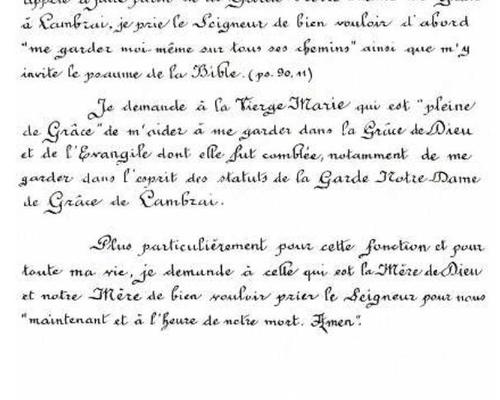 appelé à faire partie de la Garde Notre Dame de Grâce
à Cambrai, je prie le Seigneur de bien vouloir d'abord
"me garder moi-même sur tous ses chemins" ainsi que m'y
invite le psaume de la Bible. (ps. 90, 11)
Je demande à la Vierge Marie qui est "pleine
de Grâce" de m'aider à me garder dans la Grâce de Dieu
et de l'Evangile dont elle fut comblée, notamment de me
garder dans l'esprit des statuts de la Garde Notre-Dame
de Grâce de Cambrai.
Plus particulièrement pour cette fonction et pour
toute ma vie, je demande à celle qui est la Mère de Dieu
et notre Mère de bien vouloir prier le Seigneur pour nous
"maintenant et à l'heure de notre mort. Amen".